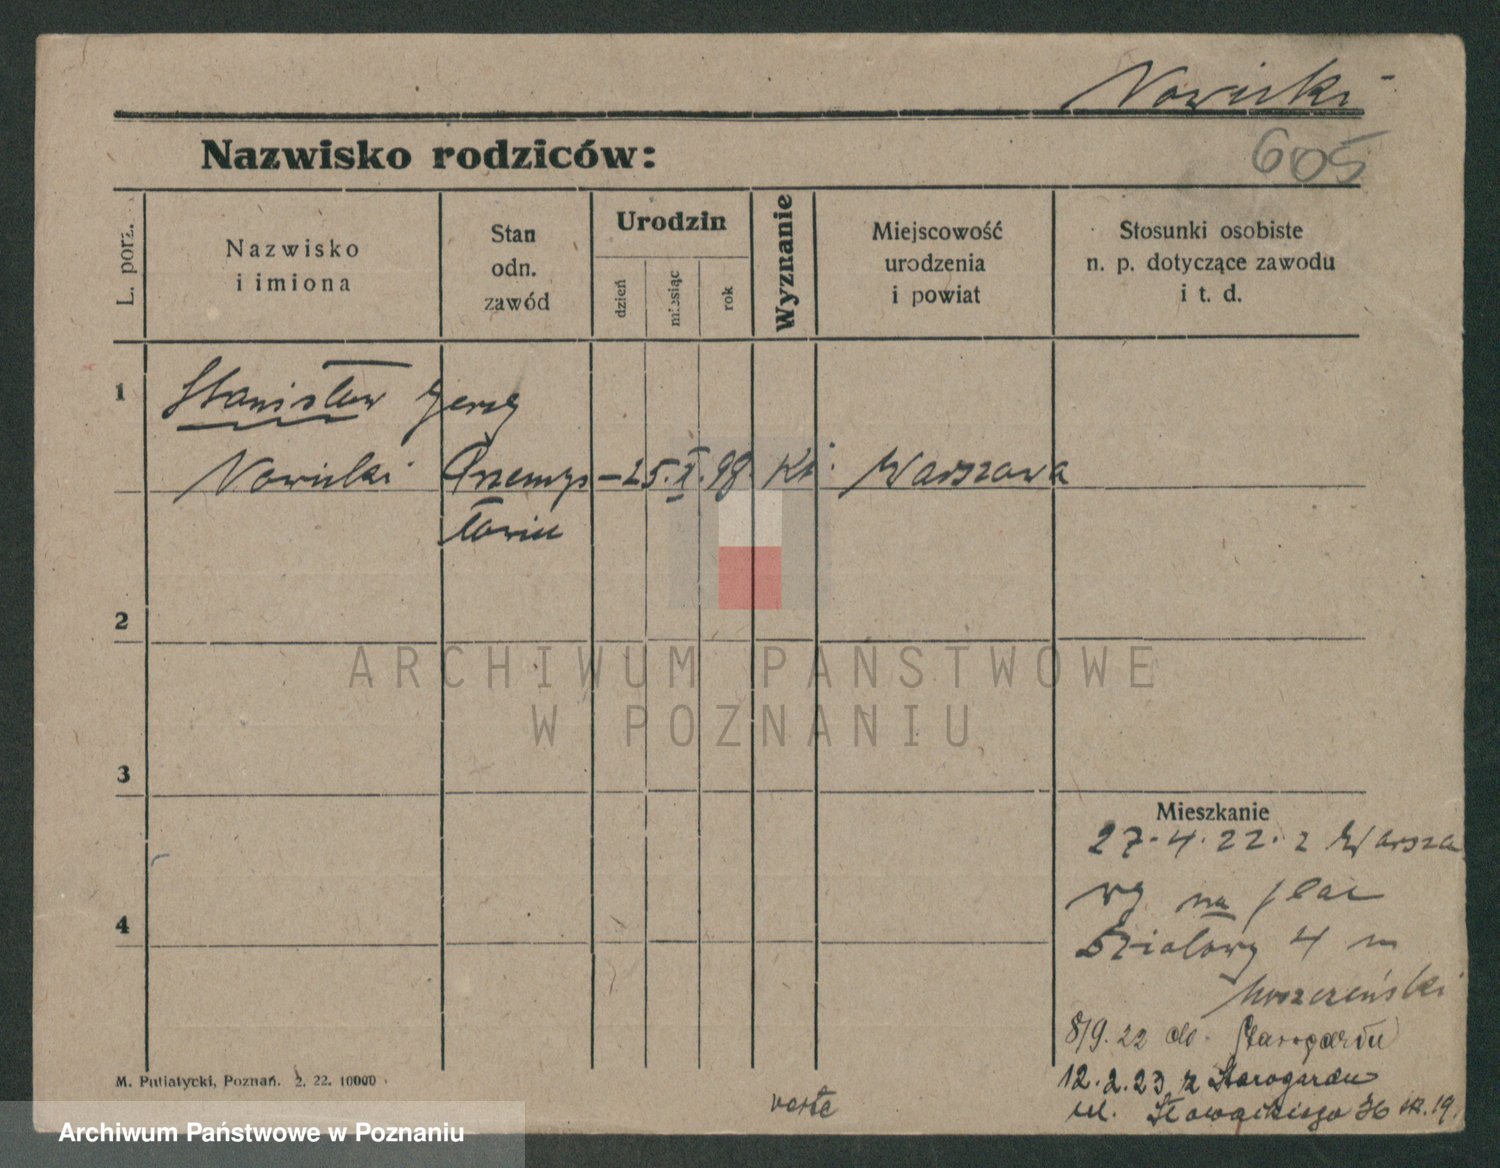 Nowicki
605
Nazwisko rodziców:
L. porz.
Nazwisko
i imiona
Stan
odn.
zawód
Urodzin
dzień
miesiąc
rok
Wyznanie
Miejscowość
urodzenia
i powiat
Stosunki osobiste
n. p. dotyczące zawodu
i t. d.
1
Stanisław Jerzy
Nowicki Przemys 25. X. 98. Kt. Warszawa
łowiec
2
ARCHIWUM PAŃSTWOWE
W POZNANIU
3
Mieszkanie
27.4.22. z Warsza
wy na plac
4
Działowy 4 m
8/9.22 do Starogardu
12.2.23 z Starogardu
ul. Słowackiego 36 19.
M. Putiatycki, Poznań. 2. 22. 10000
Archiwum Państwowe w Poznaniu